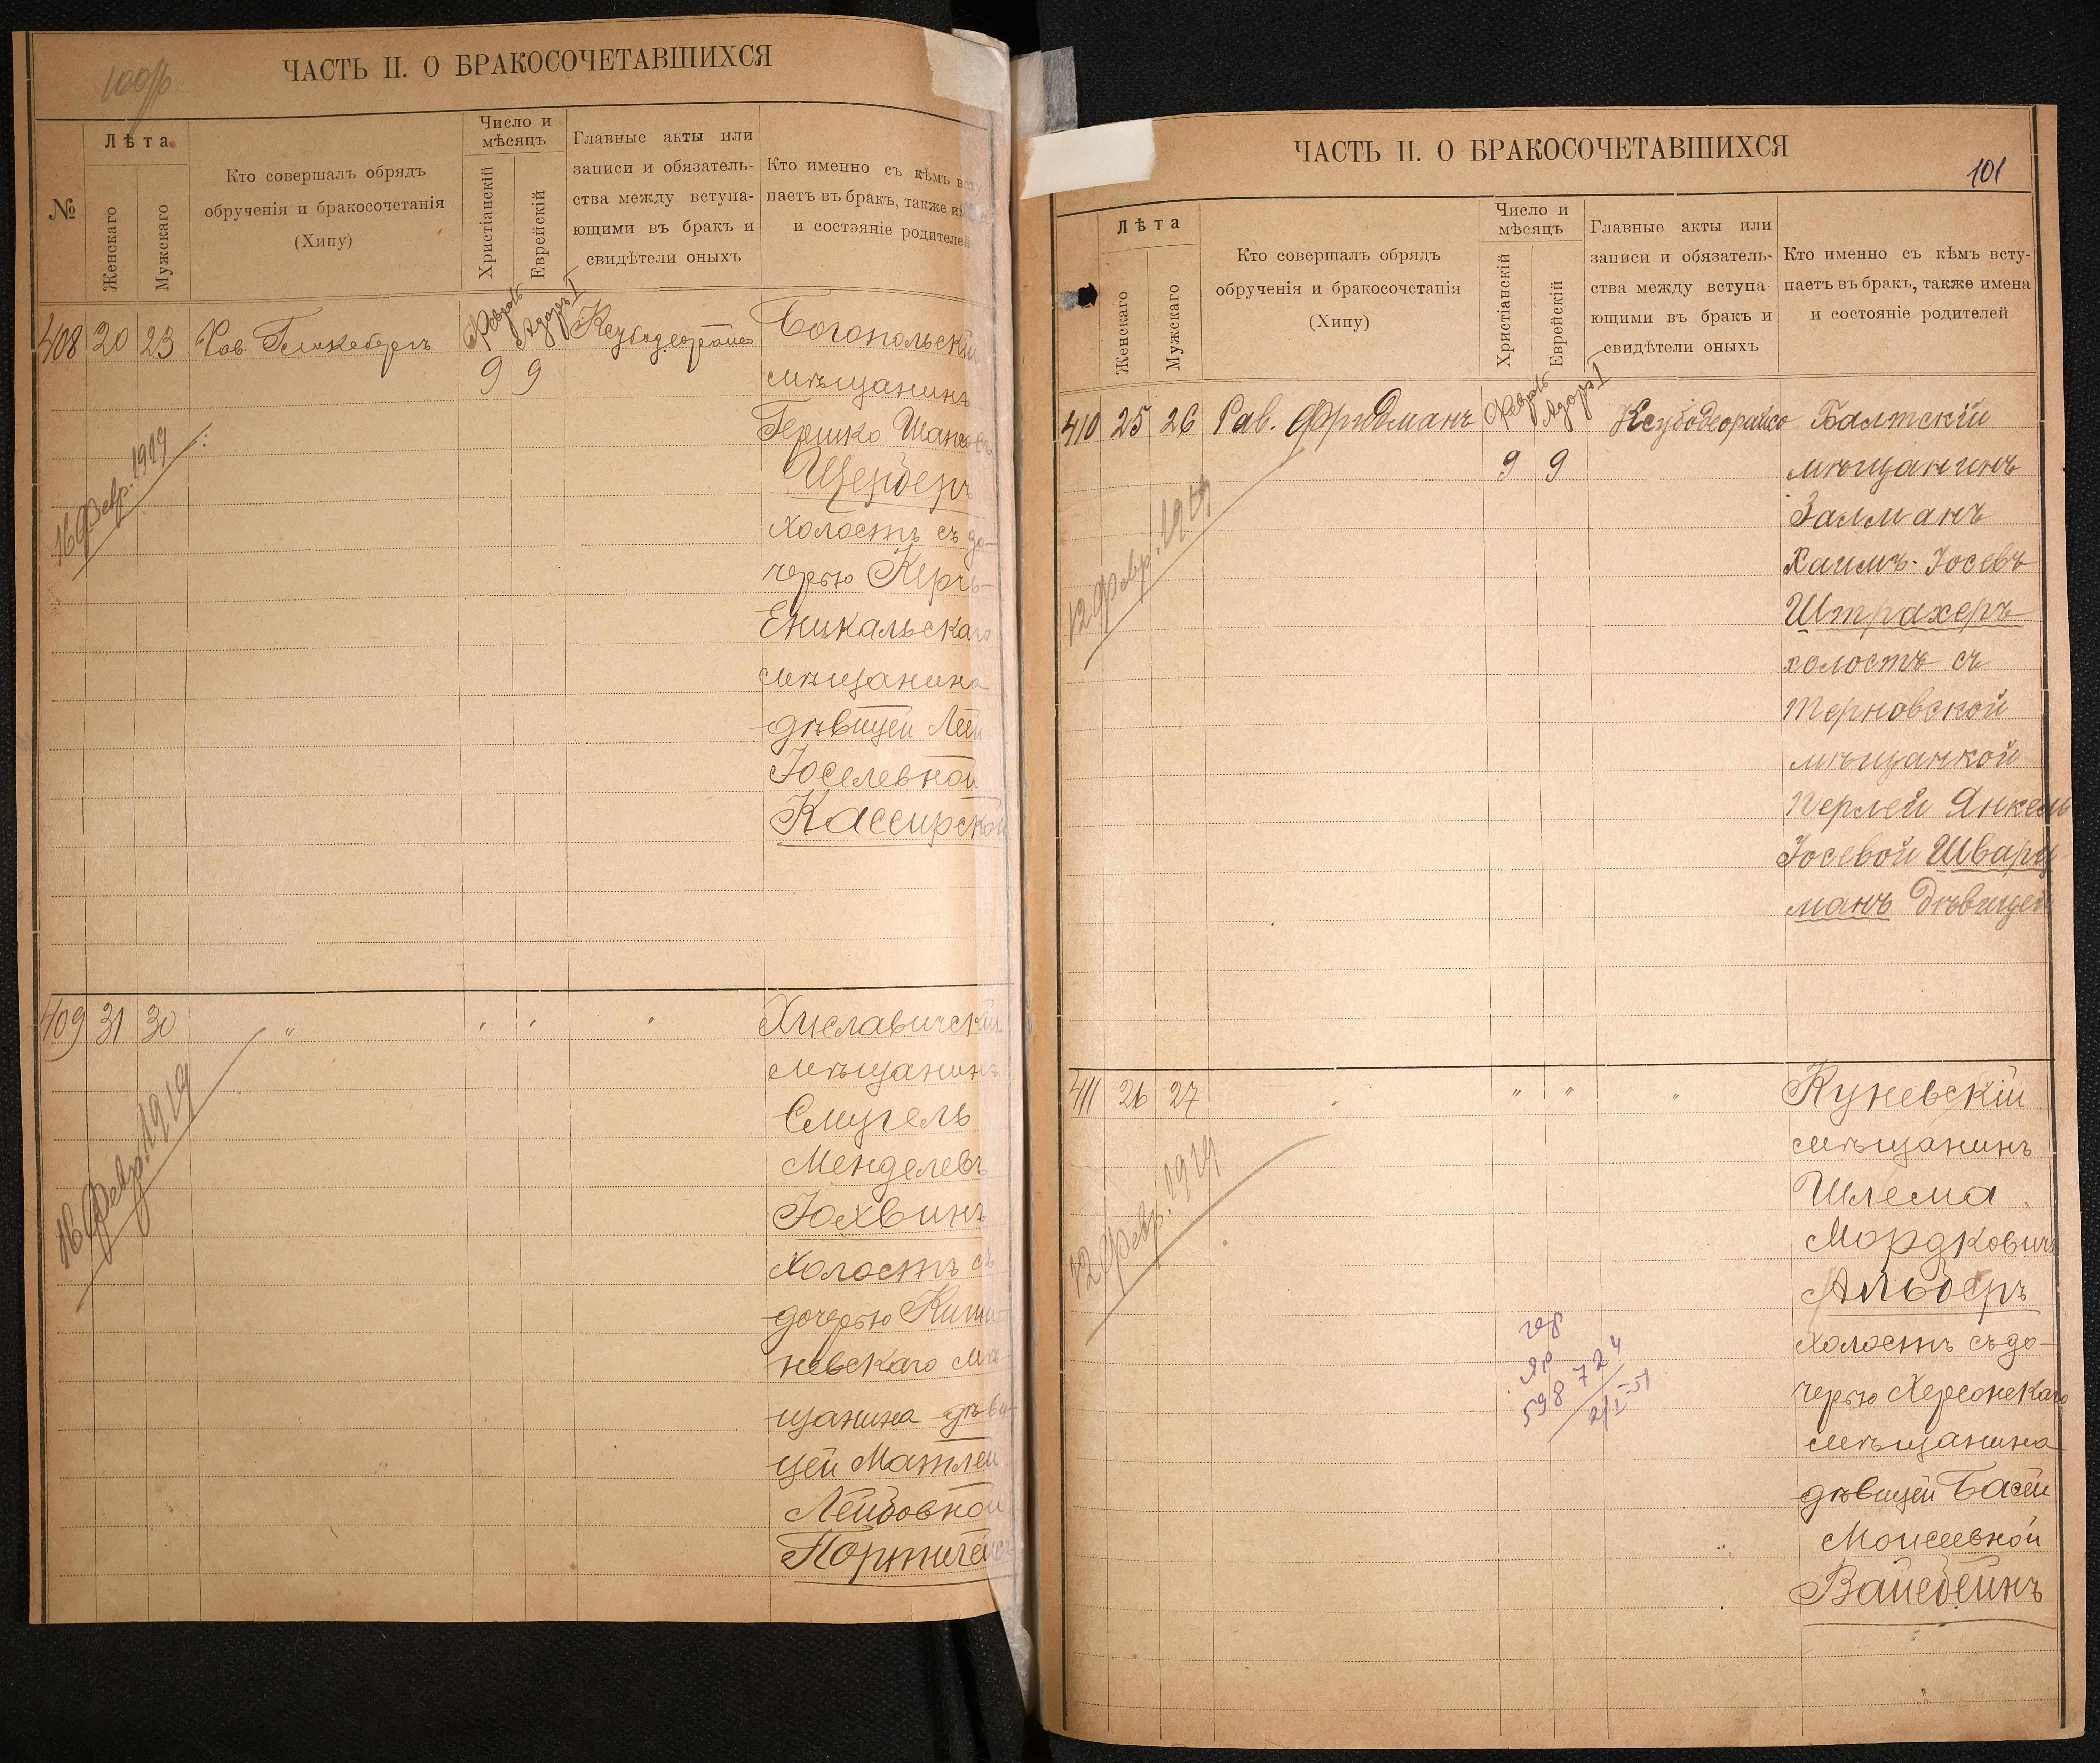 100об
ЧАСТЬ II. О БРАКОСОЧЕТАВШИХСЯ
№
Лѣта
Женскаго
Мужскаго
Кто совершалъ обрядъ
обрученія и бракосочетанія
(Хипу)
Число и
мѣсяцъ
Христіанскій
Еврейскій
Главные акты или
записи и обязатель-
ства между вступа-
ющими въ бракъ и
свидѣтели оныхъ
Кто именно съ кѣмъ всту
паетъ въ бракъ, также им
и состояніе родителей
408 20 23 Рав.
Февраль Адаръ I
9 9
Богопольскій
мѣщанинъ
Гершко
Щерберъ
холостъ съ до-
черью Керчь-
Еникальскаго
мѣщанина
дѣвицей Леей
Іоселевной
Кассирской
16 Февр. 1919
409 31 30 " " " "
Хиславичскій
мѣщанинъ
Смугель
Менделевъ
Юхвинъ
холостъ съ
дочерью Киши-
невскаго мѣ-
щанина дѣви-
цей Матлей
Лейбовной
16 Февр. 1919
ЧАСТЬ II. О БРАКОСОЧЕТАВШИХСЯ
101
Лѣта
Женскаго
Мужскаго
Кто совершалъ обрядъ
обрученія и бракосочетанія
(Хипу)
Число и
мѣсяцъ
Христіанскій
Еврейскій
Главные акты или
записи и обязатель-
ства между вступа
ющими въ бракъ и
свидѣтели оныхъ
Кто именно съ кѣмъ всту-
паетъ въ бракъ, также имена
и состояніе родителей
410 25 26 Рав. Фридманъ
Февраль Адаръ I
9 9
Ксубодеорайсо
Балтскій
мѣщанинъ
Залманъ
Хаимъ-Іосевъ
Штрахеръ
холостъ съ
Терновской
мѣщанкой
Перлей Янкель
Іосевой Шварц
манъ дѣвицей
12 Февр. 1919
411 26 27 " " " "
Куневскій
мѣщанинъ
Шлема
Мордковичъ
Альберъ
холостъ съ до-
черью Херсонскаго
мѣщанина
дѣвицей Басей
Моисеевной
Вайсбейнъ
12 Февр. 1919
598 724
2/I-51